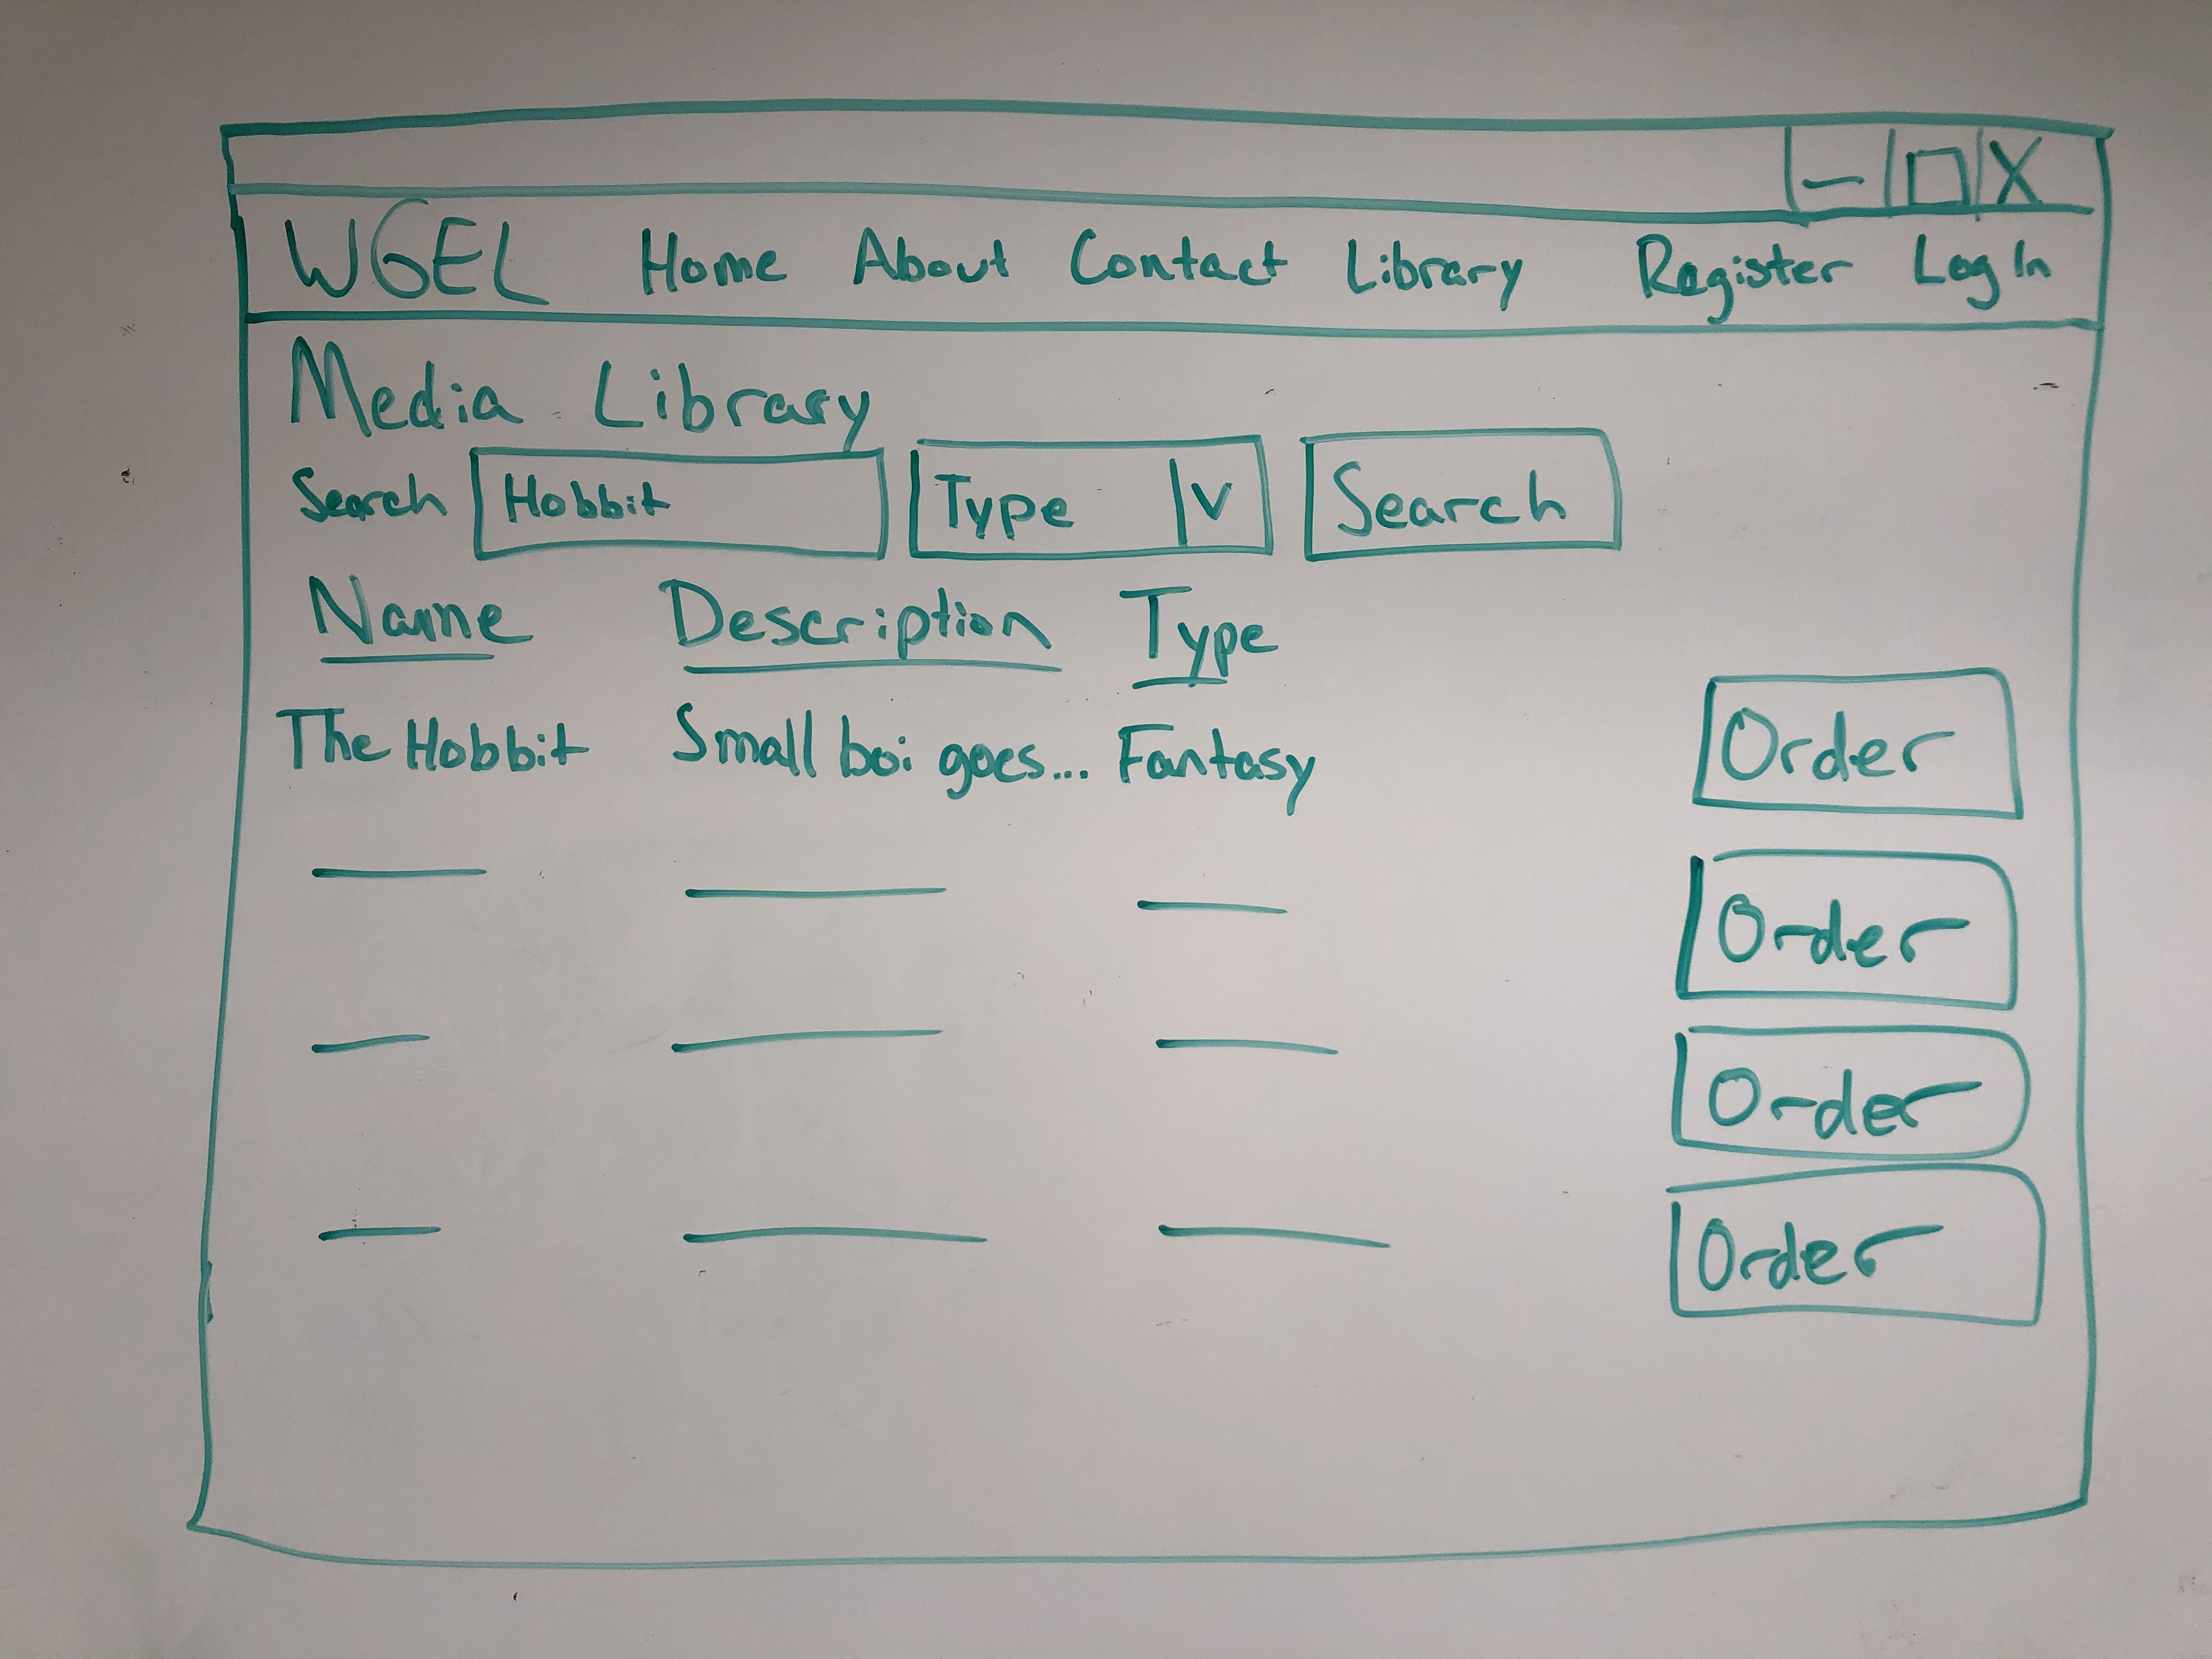 WGEL Home About Contact Library Register Log In
Media Library
Search Hobbit Type V Search
Name Description Type
The Hobbit Small boi goes... Fantasy Order
Order
Order
Order